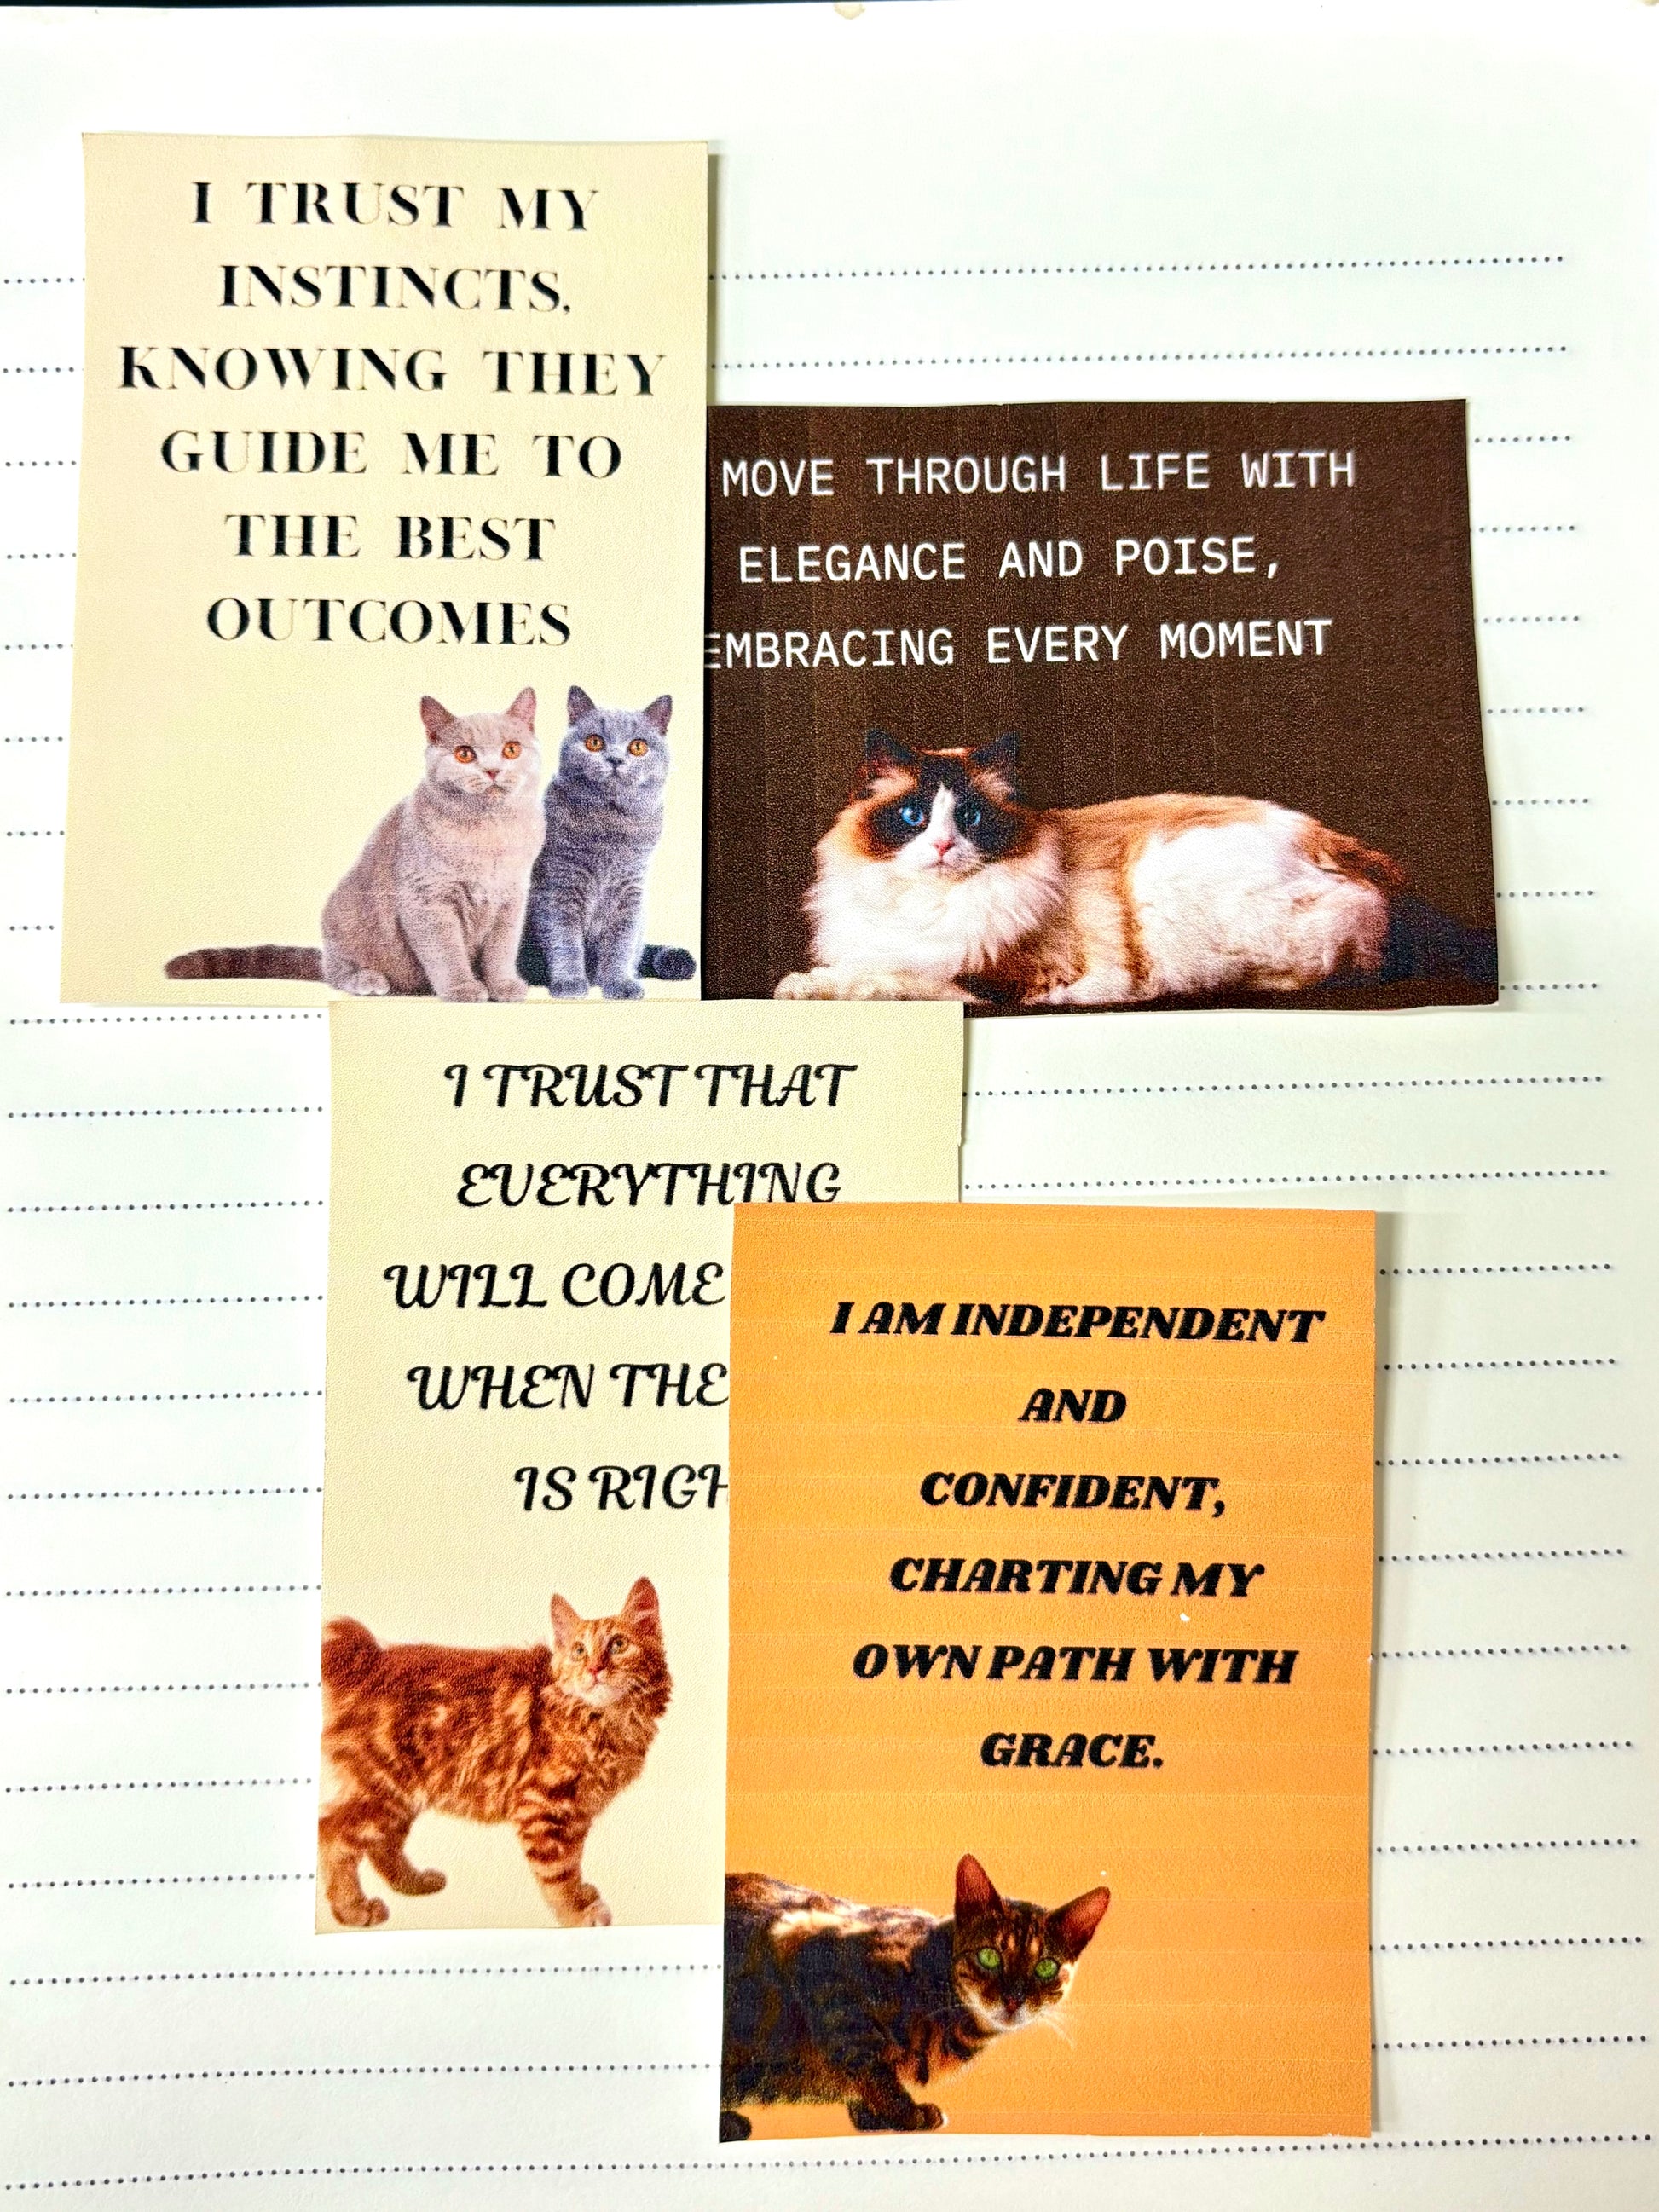 I TRUST MY
INSTINCTS,
KNOWING THEY
GUIDE ME TO
THE BEST
OUTCOMES
MOVE THROUGH LIFE WITH
ELEGANCE AND POISE,
EMBRACING EVERY MOMENT
I TRUST THAT
EVERYTHING
WILL COME
WHEN THE
IS RIGH
I AM INDEPENDENT
AND
CONFIDENT,
CHARTING MY
OWN PATH WITH
GRACE.